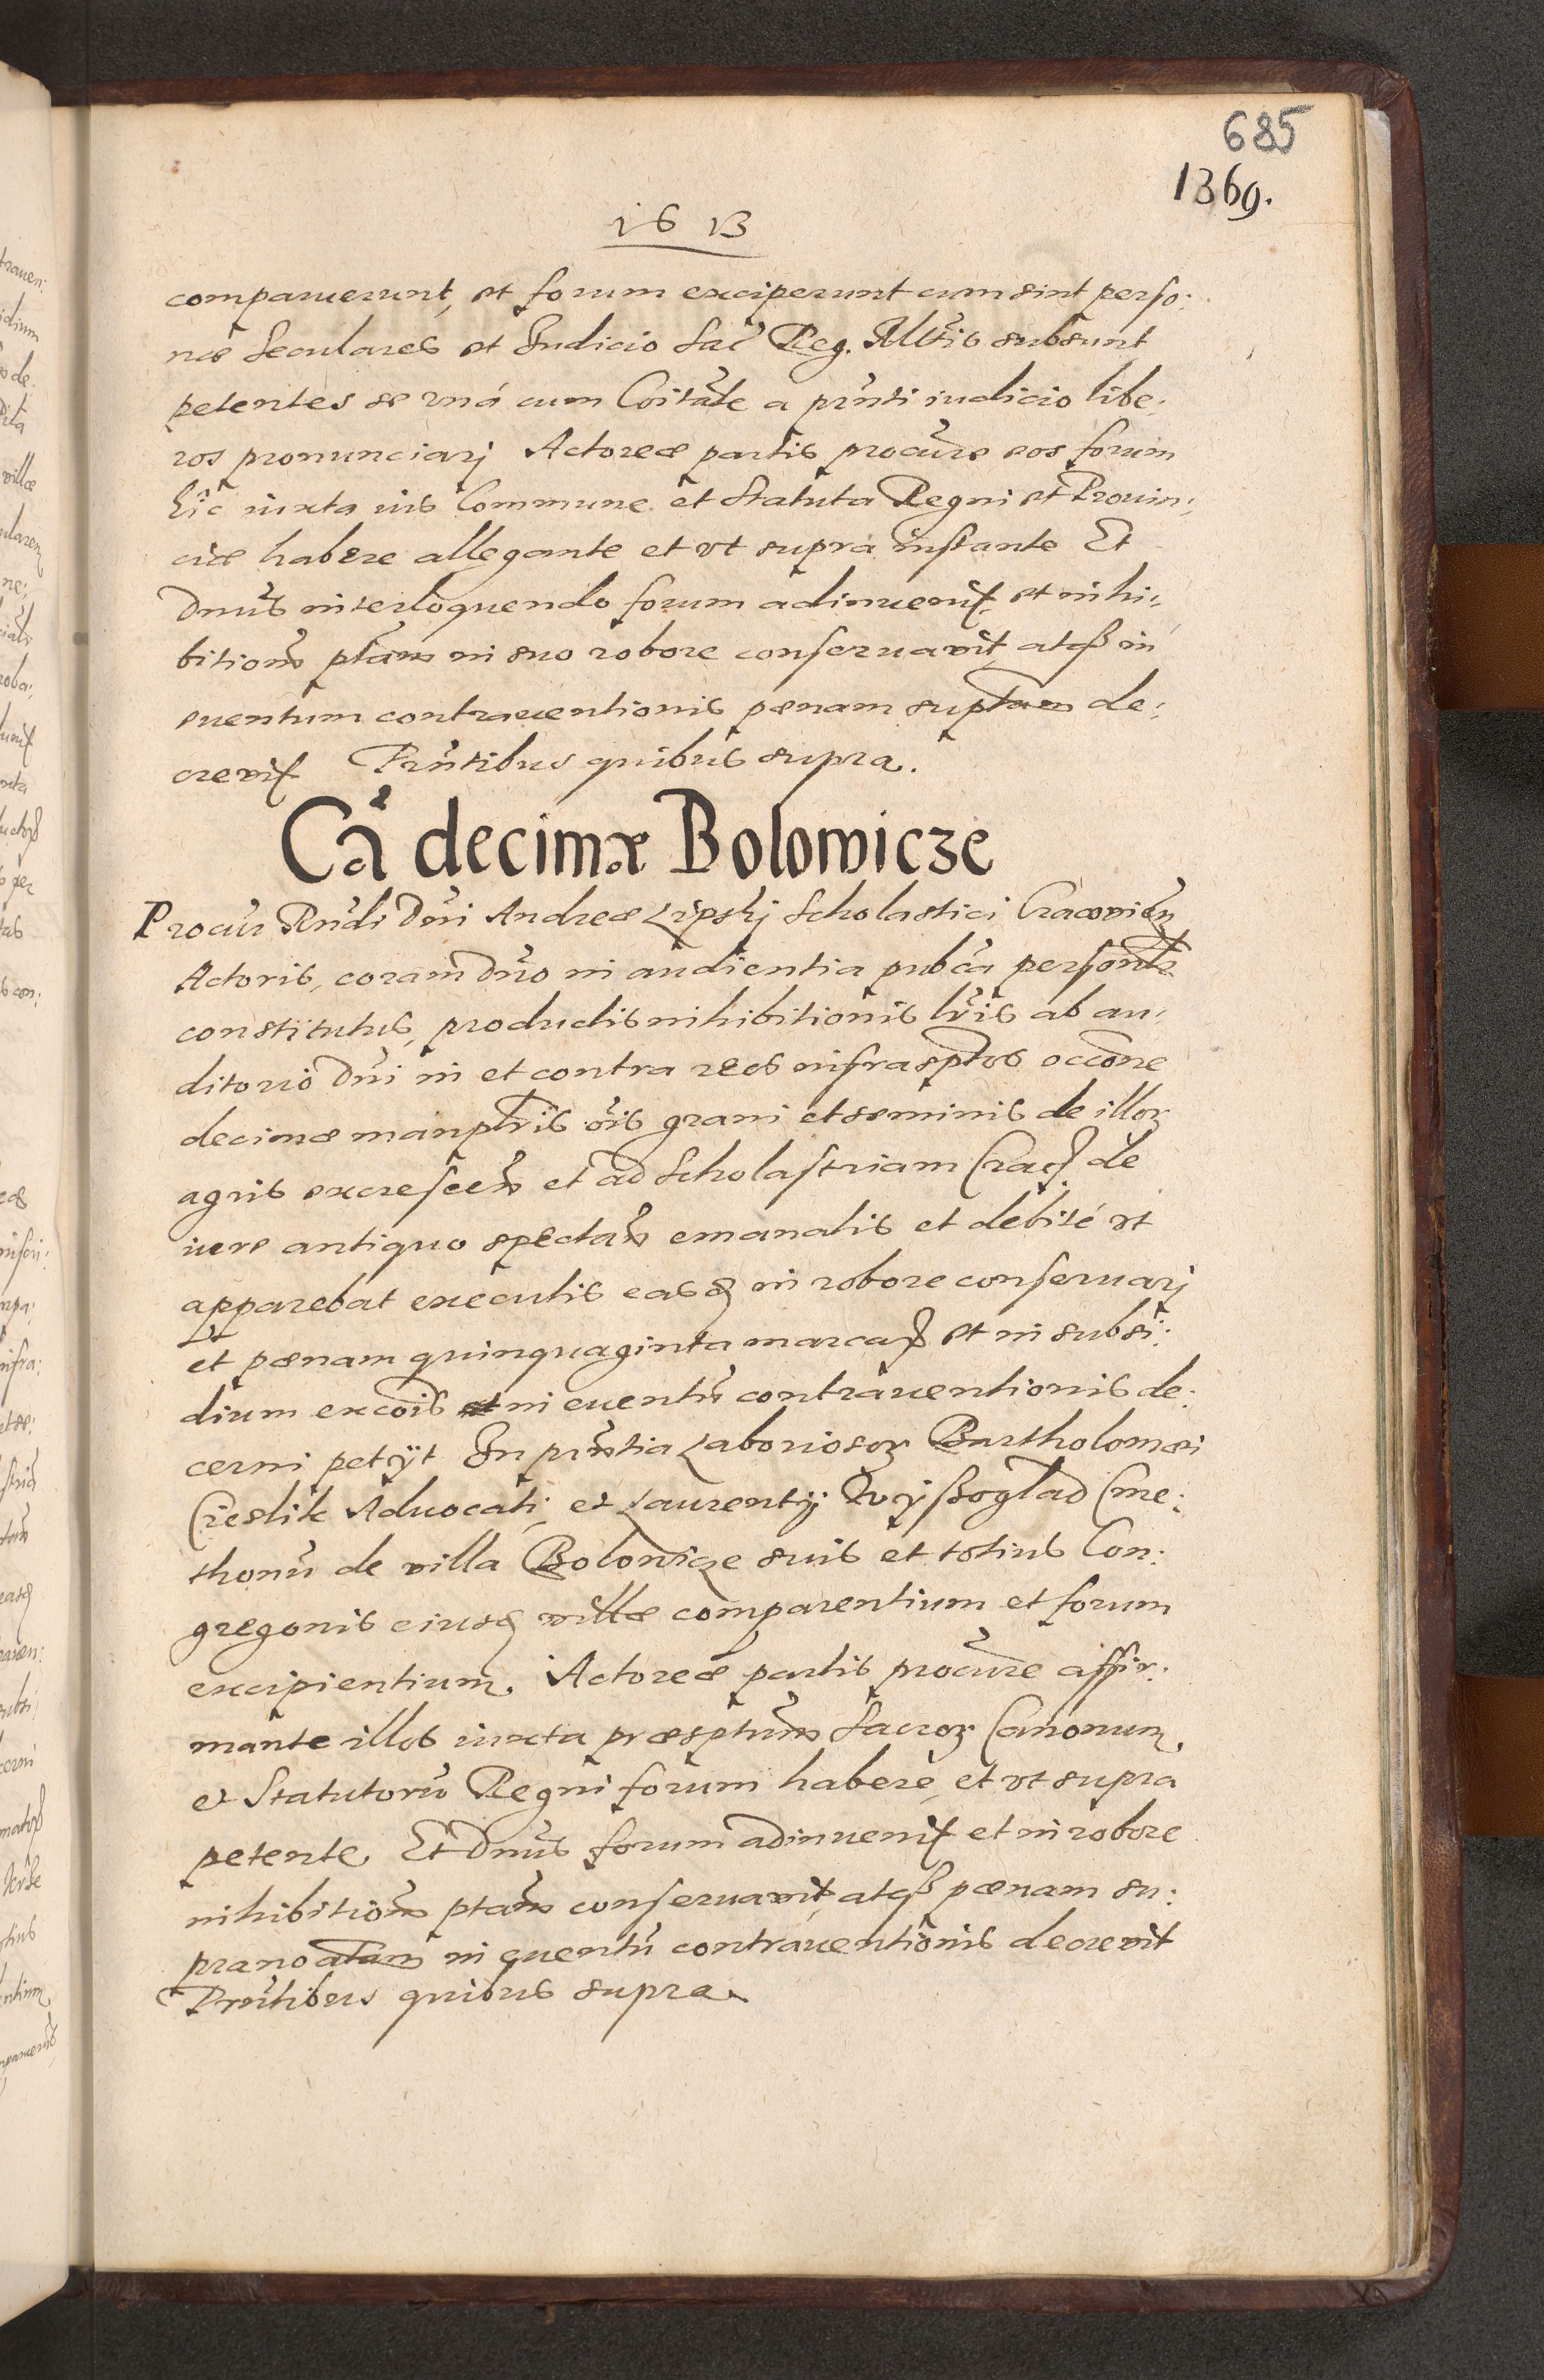 685
1369.
1613
comparuerunt, et forum exciperunt cum sint perso:
næ seculares et Iudicio Sac̃ Reg. Mt̃tis subsunt
petentes se vná cum Cõitãte a pñti iudicio libe:
ros pronunciarj Actoreæ partis procũre eos forum
hic iuxta ius Commune et Statuta Regni et Prouin:
ciæ habere allegante et vt supra instante Et
Dnũs interloquendo forum adinuenit et inhi:
bitionẽ ptãm in suo robore conseruavit, atq3 in
euentum contrauentionis pœnam suptam de:
crevit Pñtibus quibus supra.
Cã decimæ Bolowicze
Procur Rñdi Dñi Andreæ Lipskj Scholastici Cracovień
Actoris, coram Dño in audientia pubca personlr
constitutus, productis inhibitionis lr̃is ab au:
ditorio Dñi in et contra reos infrasptos occõne
decimæ maniplris õis grani et seminis de illor
agris excrescen̄ et ad Scholastriam Crac de
iure antiquo spectañ emanatis et debité vt
apparebat executis easq in robore conseruarj
et pœnam quinquaginta marcar et in subsi:
dium excõis et in euentũ contrauentionis de:
cerni petijt In pñtia Laboriosor Bartholomæi
Cieslik Aduocati, et Laurentij Wyssoglad Cme:
thonũ de villa Bolowicze suis et totius Con:
gregonis eiusd villæ comparentium et forum
excipientium. Actoreæ partis procũre affir:
mante illos iuxta præsptum Sacror Canonum,
et Statutorũ Regni forum habere, et vt supra
petente, Et Dnũs forum adinuenit et in robore
inhibitionẽ ptãm conseruavit, atq3 pœnam su:
pranoatam in euentũ contrauentionis decrevit
Pñtibus quibus supra.